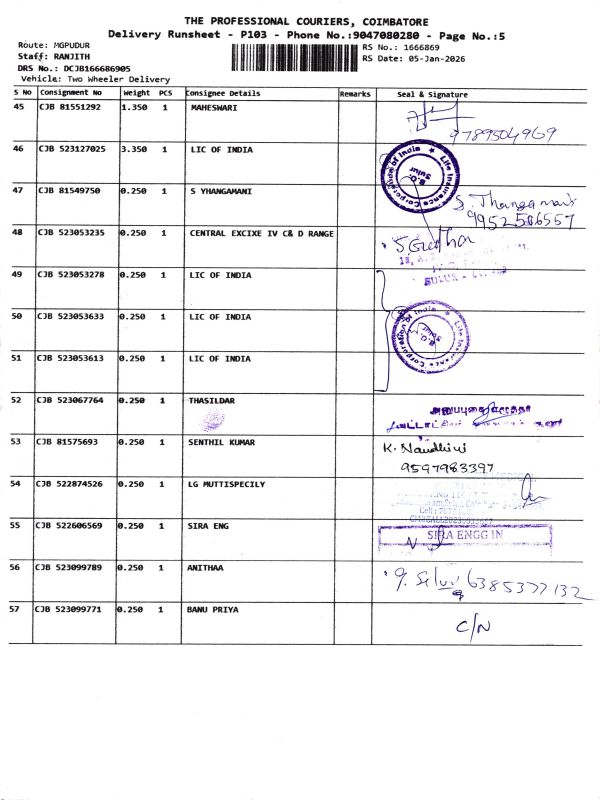 THE PROFESSIONAL COURIERS, COIMBATORE
Delivery Runsheet - P103 - Phone No.:9047080280 - Page No.:5
Route: MGPUDUR
Staff: RANJITH
DRS No.: DCJB166686905
Vehicle: Two Wheeler Delivery
RS No.: 1666869
RS Date: 05-Jan-2026
S No Consignment No Weight PCS Consignee Details Remarks Seal & Signature
45 CJB 81551292 1.350 1 MAHESWARI
9789504969
46 CJB 523127025 3.350 1 LIC OF INDIA
Life Insurance Corporation of India ★
B.O.
Sulur
47 CJB 81549750 0.250 1 S YHANGAMANI
S. Thangamani
9952566557
48 CJB 523053235 0.250 1 CENTRAL EXCIXE IV C& D RANGE
SULUR
49 CJB 523053278 0.250 1 LIC OF INDIA
50 CJB 523053633 0.250 1 LIC OF INDIA
Life Insurance Corporation of India ★
B.O.
Sulur
51 CJB 523053613 0.250 1 LIC OF INDIA
52 CJB 523067764 0.250 1 THASILDAR
53 CJB 81575693 0.250 1 SENTHIL KUMAR
K. Nandhini
9597983397
54 CJB 522874526 0.250 1 LG MUTTISPECILY
55 CJB 522606569 0.250 1 SIRA ENG
SIRA ENGG IN
56 CJB 523099789 0.250 1 ANITHAA
9. Selvi 6385377132
57 CJB 523099771 0.250 1 BANU PRIYA
C/N